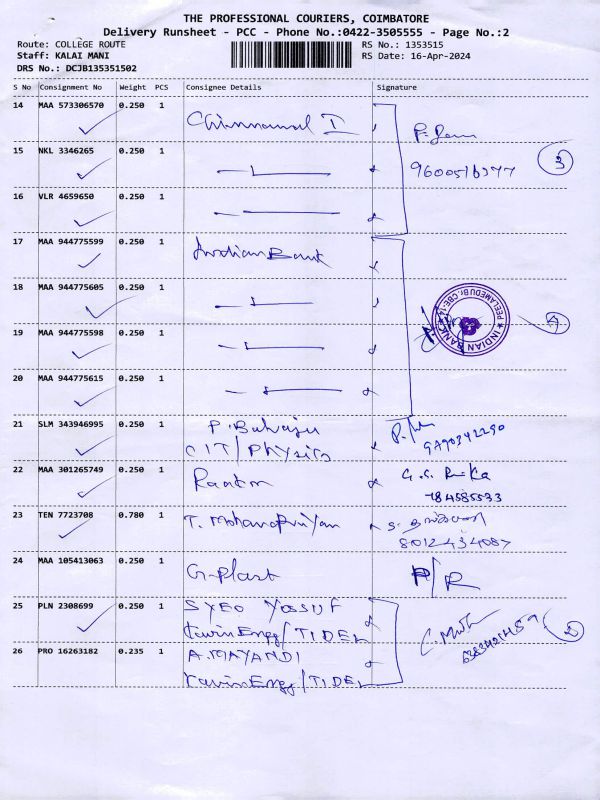 THE PROFESSIONAL COURIERS, COIMBATORE
Delivery Runsheet - PCC - Phone No.:0422-3505555 - Page No.:2
Route: COLLEGE ROUTE RS No.: 1353515
Staff: KALAI MANI RS Date: 16-Apr-2024
DRS No.: DCJB135351502
S No Consignment No Weight PCS Consignee Details Signature
14 MAA 573306570 0.250 1
15 NKL 3346265 0.250 1 3
16 VLR 4659650 0.250 1
17 MAA 944775599 0.250 1 Indian Bank
18 MAA 944775605 0.250 1
PEELAMEDU Br. CBE-14 INDIAN BANK
19 MAA 944775598 0.250 1
20 MAA 944775615 0.250 1
21 SLM 343946995 0.250 1
CIT/Physics
22 MAA 301265749 0.250 1
23 TEN 7723708 0.780 1 T. Mohanapriyan
8012434087
24 MAA 105413063 0.250 1 G-Plast R/R
25 PLN 2308699 0.250 1 SYED YOSSUF
/TIDEL 2
26 PRO 16263182 0.235 1 A.MAYANDI
/TIDEL